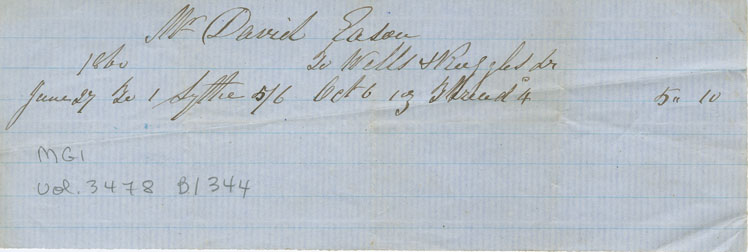 Mr David Eason
1860 To Wells & Ruggles Dr
June 27 To 1 Sythe 5/6 Oct 6 1 oz Thread 4 5" 10
MG1
Vol. 3478 B1344